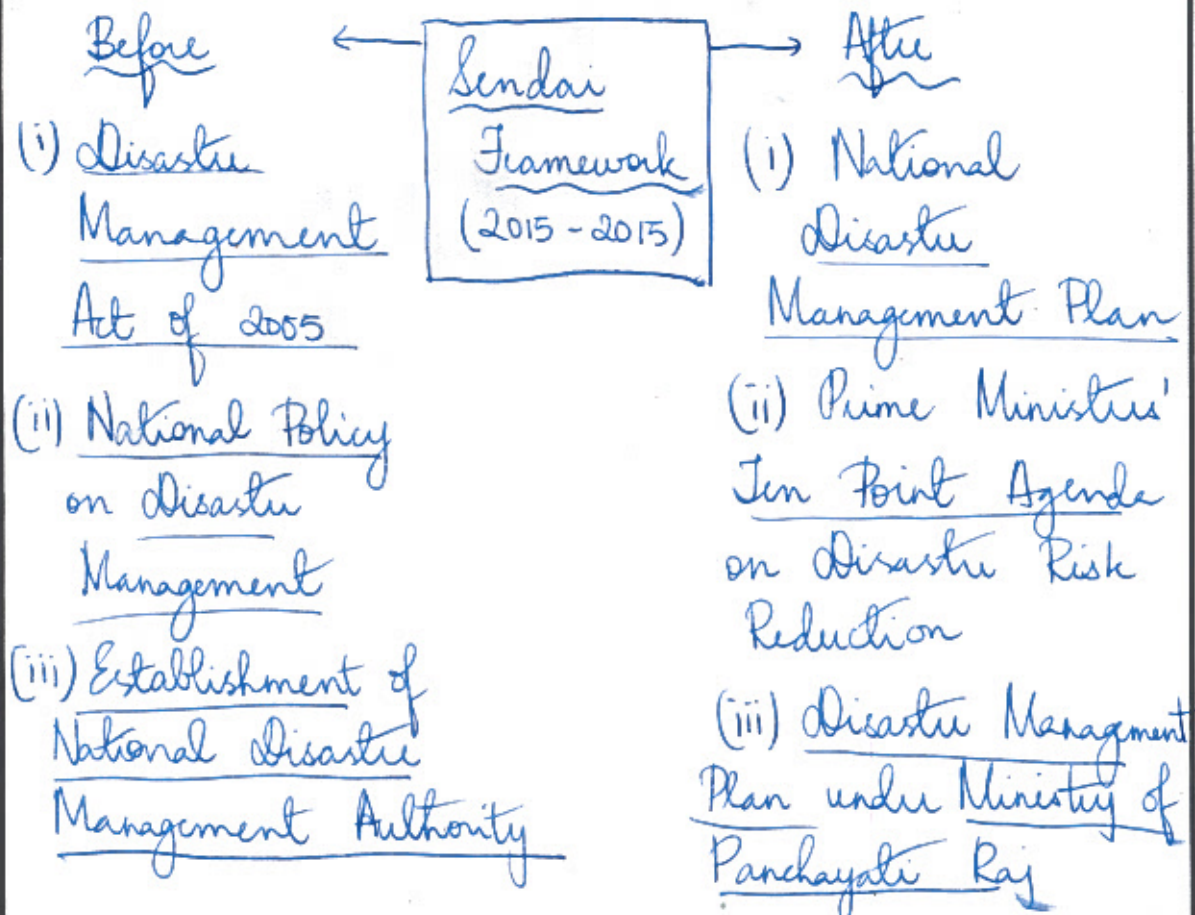 Before
(i) Disaster
Management
Act of 2005
(ii) National Policy
on Disaster
Management
(iii) Establishment of
National Disaster
Management Authority
Sendai
Framework
(2015 - 2015)
After
(i) National
Disaster
Management Plan
(ii) Prime Ministers'
Ten Point Agenda
on Disaster Risk
Reduction
(iii) Disaster Management
Plan under Ministry of
Panchayati Raj